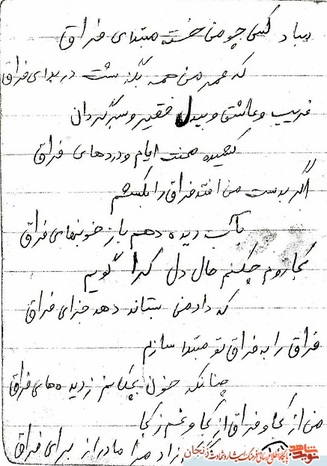 مباد کسی چو من خسته مبتلای فراق
که عمر من همه بگذشت در بلای فراق
غریب و عاشق و بیدل حقیر و سرگردان
کشیده محنت ایام و دردهای فراق
اگر بدست من افتد فراق را بکشم
بآب دیده دهم باز خونبهای فراق
کجا روم چکنم حال دل کرا گویم
که داد من بستاند دهد جزای فراق
فراق را به فراق تو مبتلا سازم
چنانکه خون بچکانم ز دیده های فراق
من از کجا و فراق از کجا و غم ز کجا
زاد مرا مادر از برای فراق